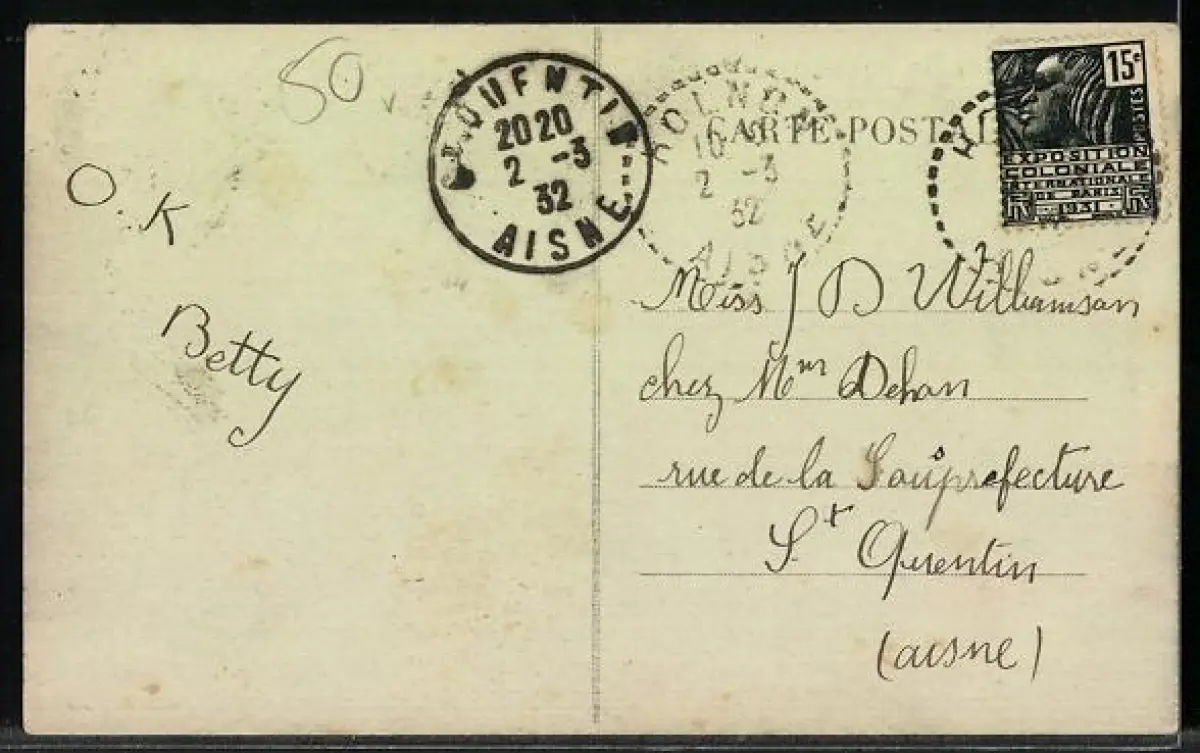 50
O.K
Betty
ST QUENTIN
20 20
2 -3
32
AISNE
HOLNON
2 -3
32
AISNE
CARTE POSTALE
15c
POSTES
EXPOSITION
COLONIALE
INTERNATIONALE
DE PARIS
1931
Miss J D Williamson
chez Mme Dehan
rue de la Sousprefecture
St Quentin
(aisne)